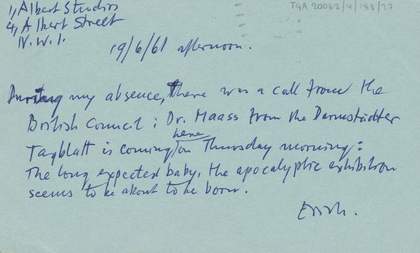 1, Albert Studios
4, Albert Street
N.W.1.
TGA 20052/4/188/27
19/6/61 afternoon.
During my absence, there was a call from the
British Council: Dr. Maass from the Darmstädter
Tagblatt is coming here on Thursday morning:
The long expected baby, the apocalyptic exhibition
seems to be about to be born.
Erich.